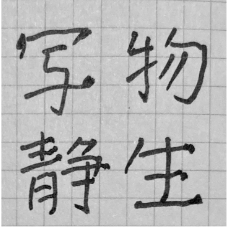 写物
静生